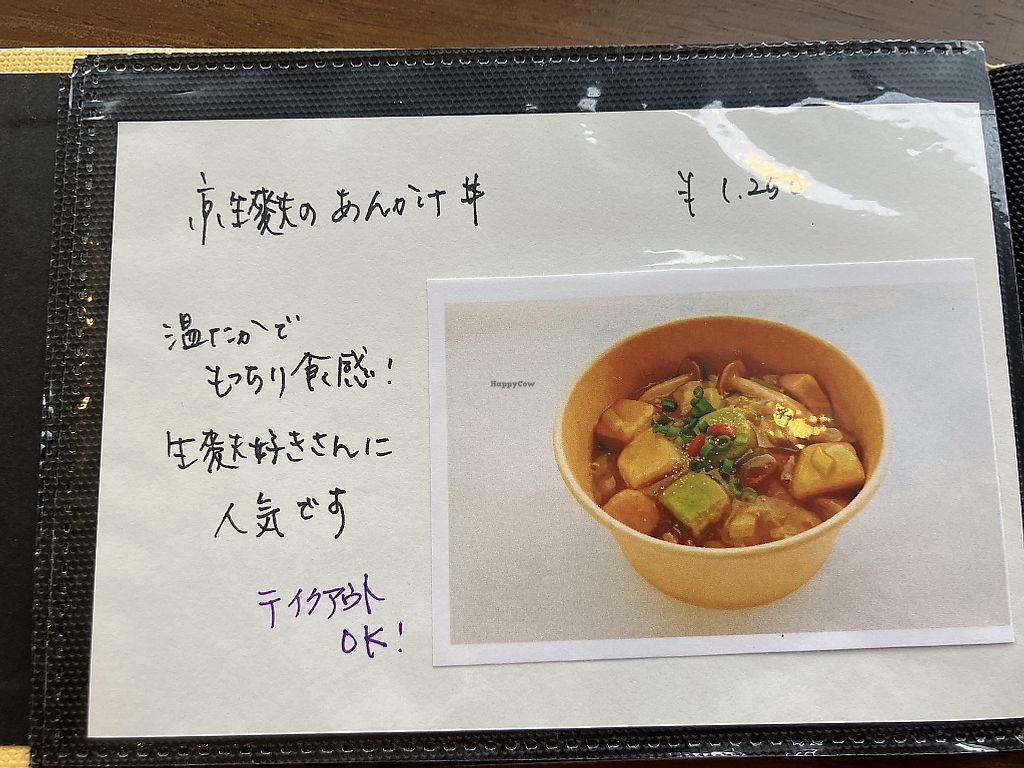 京生麩のあんかけ丼 ¥1.250
温たかで
もっちり食感!
生麩好きさんに
人気です
テイクアウト
OK!
HappyCow